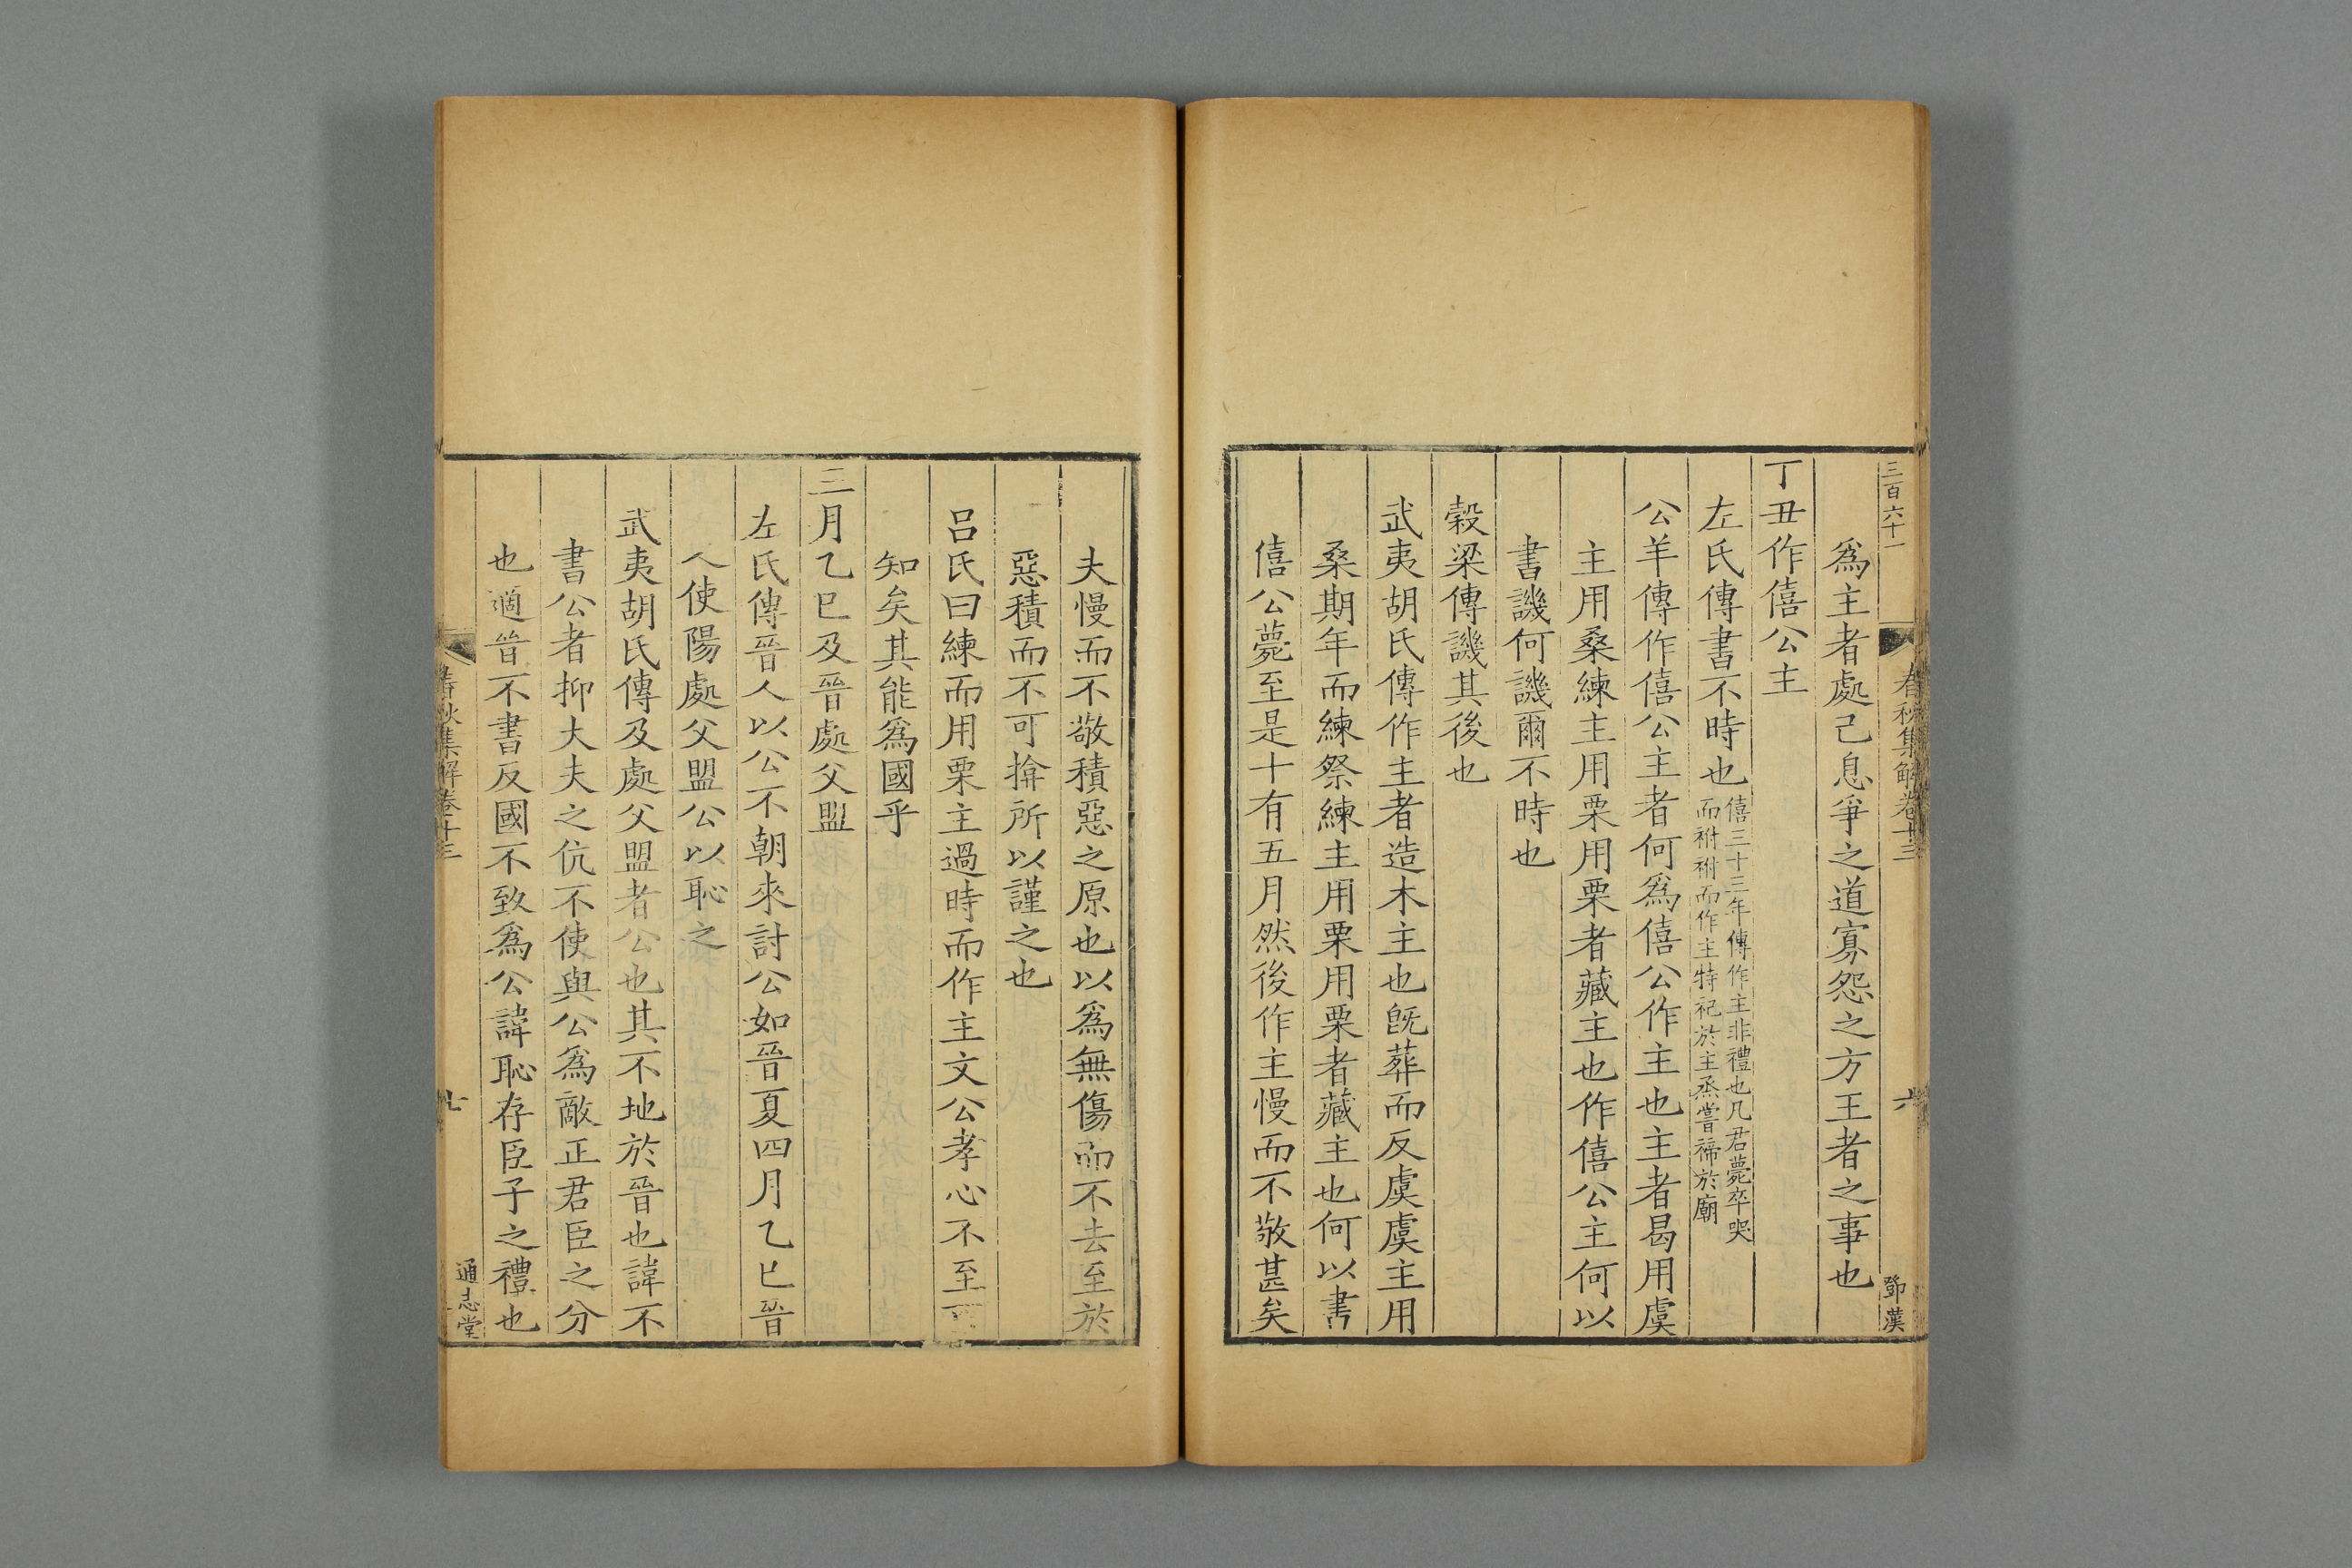 三百六十一
春秋集解卷十三
六
鄧漢
爲主者處己息爭之道寡怨之方王者之事也
丁丑作僖公主
左氏傳書不時也
僖三十三年傳作主非禮也凡君薨卒哭
而祔祔而作主特祀於主烝嘗禘於廟
公羊傳作僖公主者何爲僖公作主也主者曷用虞
主用桑練主用栗用栗者藏主也作僖公主何以
書譏何譏爾不時也
穀梁傳譏其後也
武夷胡氏傳作主者造木主也旣葬而反虞虞主用
桑期年而練祭練主用栗用栗者藏主也何以書
僖公薨至是十有五月然後作主慢而不敬甚矣
夫慢而不敬積惡之原也以爲無傷而不去至於
惡積而不可揜所以謹之也
呂氏曰練而用栗主過時而作主文公孝心不至可
知矣其能爲國乎
三月乙巳及晉處父盟
左氏傳晉人以公不朝來討公如晉夏四月乙巳晉
人使陽處父盟公以恥之
武夷胡氏傳及處父盟者公也其不地於晉也諱不
書公者抑大夫之伉不使與公爲敵正君臣之分
也適晉不書反國不致爲公諱恥存臣子之禮也
春秋集解卷十三
七
通志堂